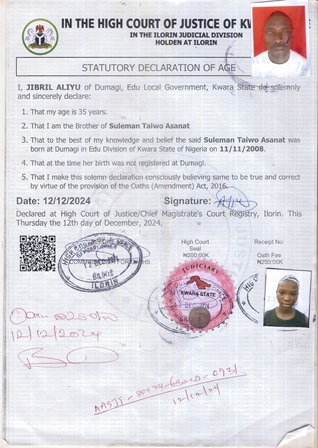 IN THE HIGH COURT OF JUSTICE OF KW
IN THE ILORIN JUDICIAL DIVISION
HOLDEN AT ILORIN
STATUTORY DECLARATION OF AGE
I, JIBRIL ALIYU of Dumagi, Edu Local Government, Kwara State do solemnly
and sincerely declare:
1. That my age is 35 years.
2. That I am the Brother of Suleman Taiwo Asanat
3. That to the best of my knowledge and belief the said Suleman Taiwo Asanat was
born at Dumagi in Edu Division of Kwara State of Nigeria on 11/11/2008.
4. That at the time her birth was not registered at Dumagi.
5. That I make this solemn declaration consciously believing same to be true and correct
by virtue of the provision of the Oaths (Amendment) Act, 2016.
Date: 12/12/2024 Signature:
Declared at High Court of Justice/Chief Magistrate's Court Registry, Ilorin. This
Thursday the 12th day of December, 2024.
High Court
Seal
N200:00K
Receipt No:
Oath Fee
N250:00K
BILIKIS
ILORIN
JUDICIARY
KWARA STATE
12/12/2024
12/12/24